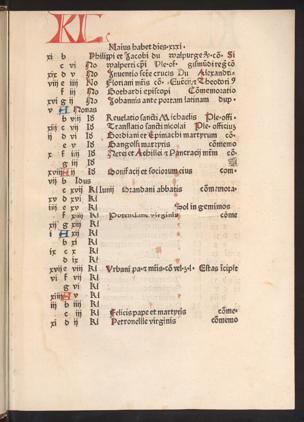 KL
Maius habet dies.xxxi.
xi b Philippi et Jacobi du walpurge Si
c vi No walperti epi Ple of
xix d v No Inuentio scte crucis Du Alexandri
viij e iiij No Floriani mris cõ Theodori
f iij No Gothardi episcopi Cõmemoratio
xvi g ij No Johannis ante portam latinam dup
v A Nonas
b viij Id Reuelatio sancti Michaelis Ple offi
xiij c vij Id Translatio sancti nicolai Ple officiũ
ij d vi Id Gordiani et Epimachi martyrum cõ
e v Id Gangolfi martyris cõmemo
x f iiij Id Nerei et Achillei et Pancracij mrm cõ
g iij Id
xviij A ij Id Bonifacij et sociorum eius com
vij b Idus
c xvij Kl Iunij Brandani abbatis cõmemora
xv d xvi Kl
iiij e xv Kl Sol in geminos
f xiiij Kl Potentiane virginis cõme
xij g xiij Kl
i A xij Kl
b xi Kl
ix c x Kl
d ix Kl
xvij e viij Kl Vrbani pape mris cõ Estas
vi f vij Kl
g vi Kl
xiiij A v Kl
iij b iiij Kl
c iij Kl Felicis pape et martyris cõme
xi d ij Kl Petronelle virginis cõmemo